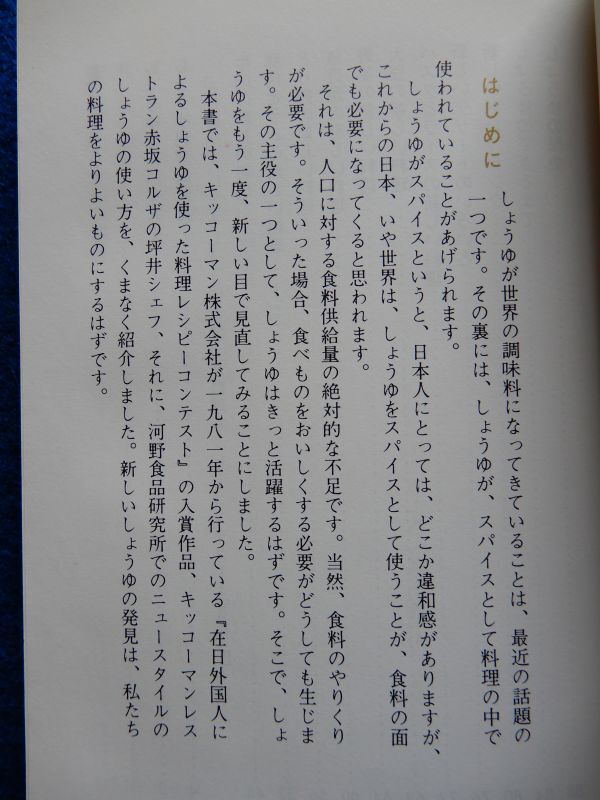 はじめに
しょうゆが世界の調味料になってきていることは、最近の話題の
一つです。その裏には、しょうゆが、スパイスとして料理の中で
使われていることがあげられます。
しょうゆがスパイスというと、日本人にとっては、どこか違和感がありますが、
これからの日本、いや世界は、しょうゆをスパイスとして使うことが、食料の面
でも必要になってくると思われます。
それは、人口に対する食料供給量の絶対的な不足です。当然、食料のやりくり
が必要です。そういった場合、食べものをおいしくする必要がどうしても生じま
す。その主役の一つとして、しょうゆはきっと活躍するはずです。そこで、しょ
うゆをもう一度、新しい目で見直してみることにしました。
本書では、キッコーマン株式会社が一九八一年から行っている『在日外国人に
よるしょうゆを使った料理レシピーコンテスト』の入賞作品、キッコーマンレス
トラン赤坂コルザの坪井シェフ、それに、河野食品研究所でのニュースタイルの
しょうゆの使い方を、くまなく紹介しました。新しいしょうゆの発見は、私たち
の料理をよりよいものにするはずです。